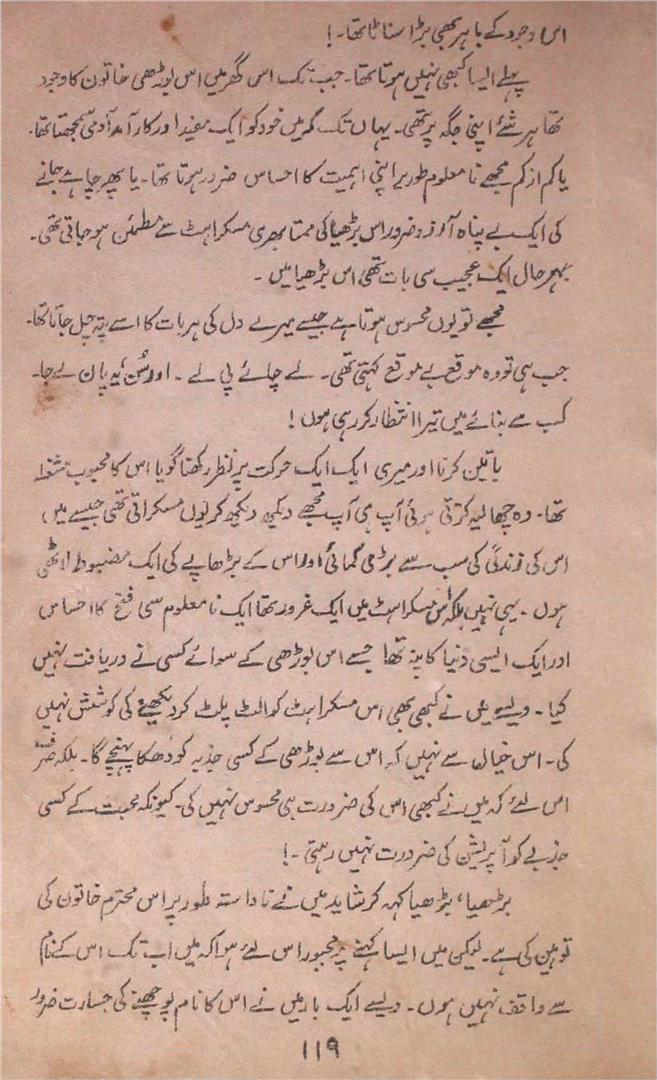 اس وجود کے باہر بھی بڑا سناٹا تھا۔!
پہلے ایسا کبھی نہیں ہوتا تھا۔ جب تک اس گھر میں اس بوڑھی خاتون کا وجود
تھا ہر شئے اپنی جگہ پر تھی۔ یہاں تک کہ میں خود کو ایک مفید اور کارآمد آدمی سمجھتا تھا۔
یا کم از کم مجھے نامعلوم طور پر اپنی اہمیت کا احساس ضرور ہوتا تھا۔ یا پھر چاہے جانے
کی ایک بے پناہ آرزو ضرور اس بڑھیا کی ممتا بھری مسکراہٹ سے مطمئن ہو جاتی تھی۔
بہر حال ایک عجیب سی بات تھی اس بڑھیا میں۔
مجھے تو یوں محسوس ہوتا ہے جیسے میرے دل کی ہر بات کا اسے پتہ چل جاتا تھا۔
جب ہی تو وہ موقع بے موقع کہتی تھی۔ لے چائے پی لے۔ اور سُن، یہ پان لے جا۔
کب سے بنائے میں تیرا انتظار کر رہی ہوں!
باتیں کرنا اور میری ایک ایک حرکت پر نظر رکھنا گویا اس کا محبوب مشغلہ
تھا۔ وہ چھالیہ کترتی ہوئی آپ ہی آپ مجھے دیکھ دیکھ کر یوں مسکراتی تھی جیسے میں
اس کی زندگی کی سب سے بڑی کمائی اور اس کے بڑھاپے کی ایک مضبوط لاٹھی
ہوں۔ یہی نہیں بلکہ اس مسکراہٹ میں ایک غرور تھا ایک نامعلوم سی فتح کا احساس
اور ایک ایسی دنیا کا پتہ تھا جسے اس بوڑھی کے سوائے کسی نے دریافت نہیں
کیا۔ ویسے میں نے کبھی بھی اس مسکراہٹ کو الٹ پلٹ کر دیکھنے کی کوشش نہیں
کی۔ اس خیال سے نہیں کہ اس سے بوڑھی کے کسی جذبہ کو دھکا پہنچے گا۔ بلکہ صرف
اس لئے کہ میں نے کبھی اس کی ضرورت ہی محسوس نہیں کی۔ کیونکہ محبت کے کسی
جذبے کو آپریشن کی ضرورت نہیں رہتی۔!
بڑھیا، بڑھیا کہہ کر شاید میں نے نادانستہ طور پر اس محترم خاتون کی
توہین کی ہے۔ لیکن میں ایسا کہنے پر مجبور اس لئے ہوا کہ میں اب تک اس کے نام
سے واقف نہیں ہوں۔ ویسے ایک بار میں نے اس کا نام پوچھنے کی جسارت ضرور
۱۱۹